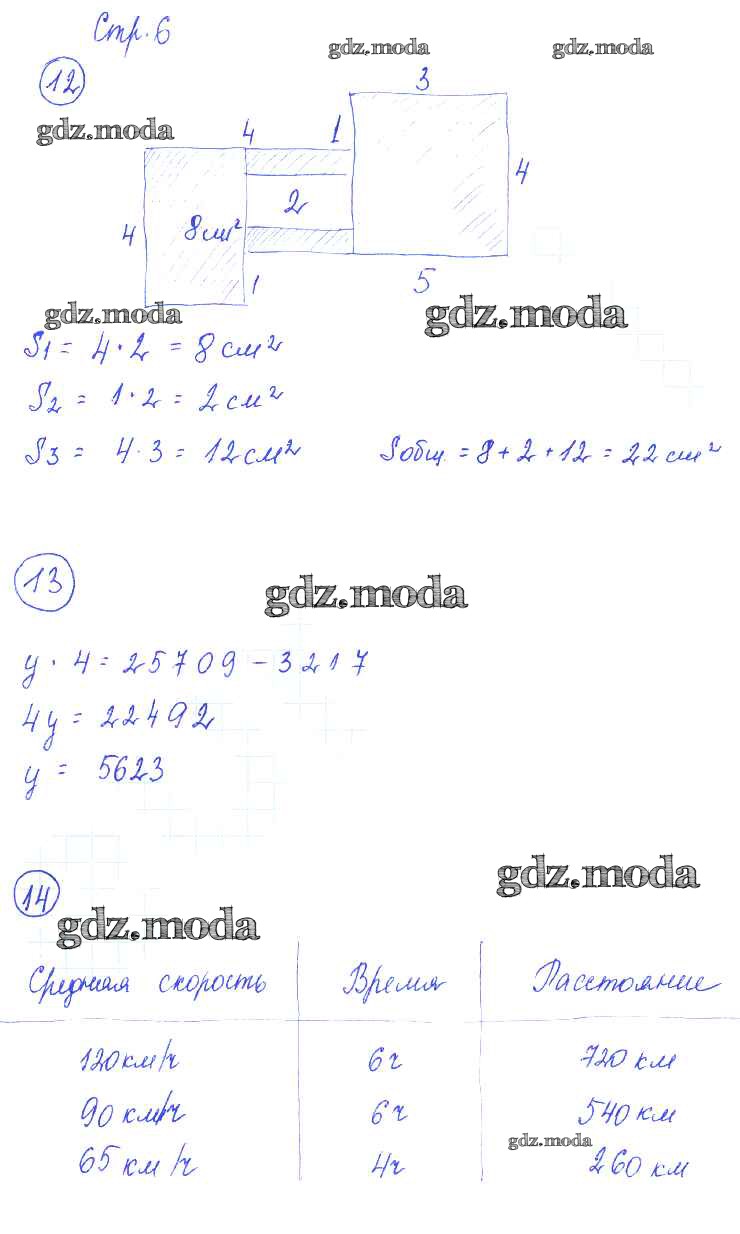 Стр. 6
gdz.moda gdz.moda
12
3
gdz.moda
4 1
4
2
4 8 см²
1
5
gdz.moda gdz.moda
S1 = 4 · 2 = 8 см²
S2 = 1 · 2 = 2 см²
S3 = 4 · 3 = 12 см² Sобщ. = 8 + 2 + 12 = 22 см²
13
gdz.moda
y · 4 = 25709 - 3217
4y = 22492
y = 5623
gdz.moda
14
gdz.moda
Средняя скорость Время Расстояние
120 км/ч 6 ч 720 км
90 км/ч 6 ч 540 км
gdz.moda
65 км/ч 4 ч 260 км